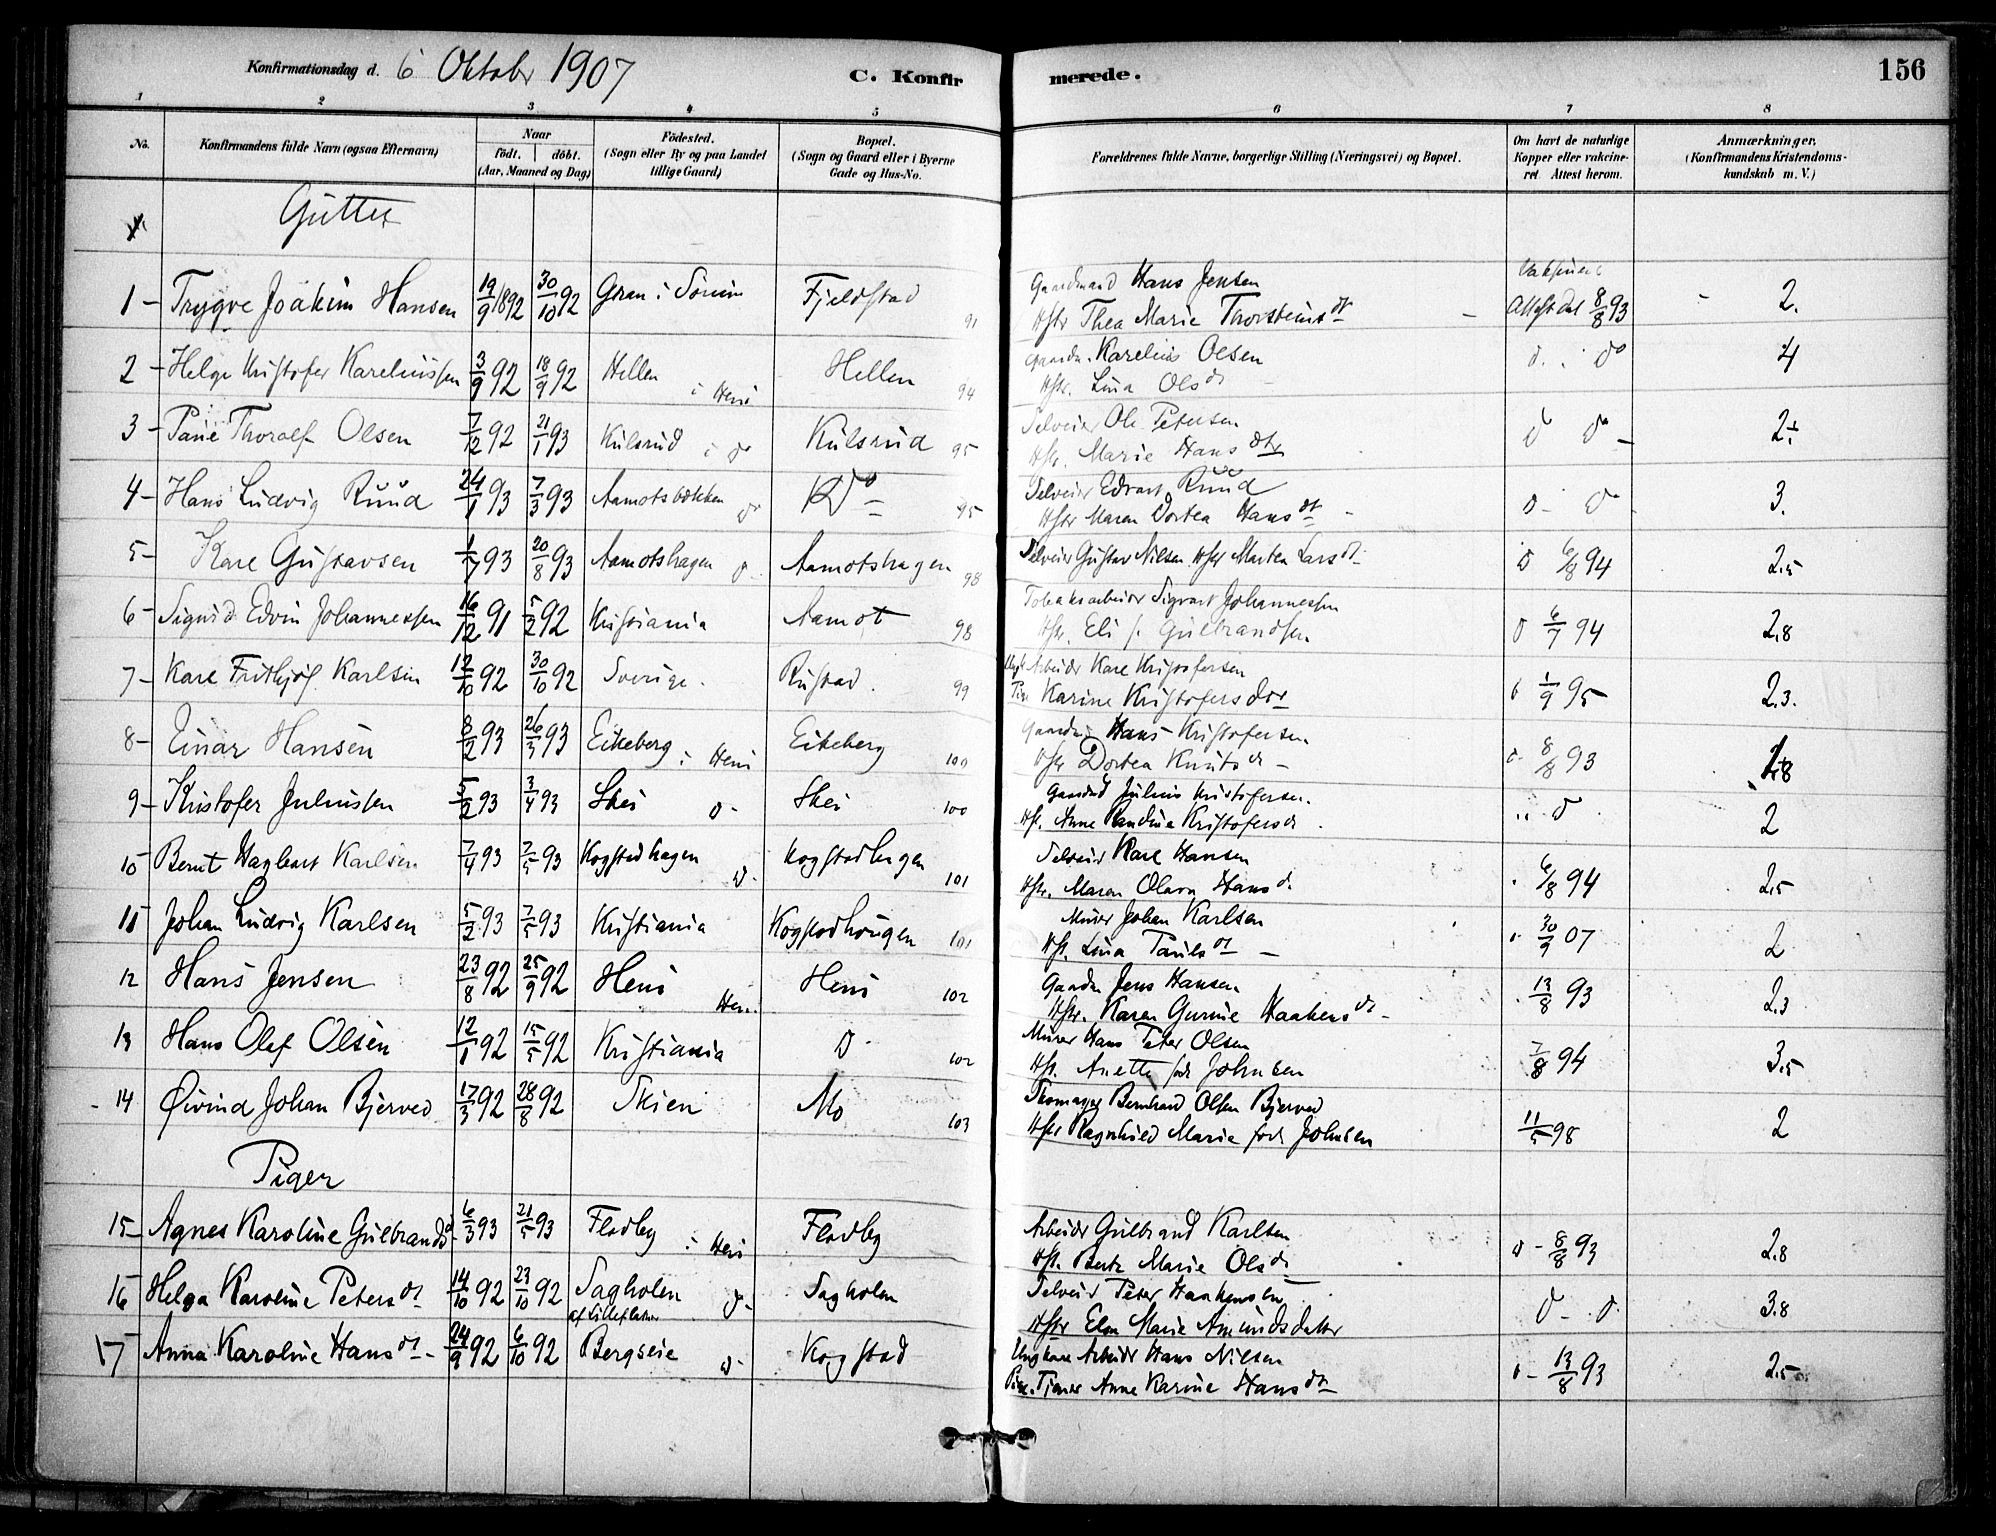 Konfirmationsdag d. 6 Oktober 1907
C. Konfirmerede.
156
1 2 3 4 5 6 7 8
No.
Konfirmandens fulde Navn (ogsaa Efternavn)
Naar født. | døbt. (Aar, Maaned og Dag)
Fødested. (Sogn eller By og paa Landet tillige Gaard)
Bopæl. (Sogn og Gaard eller i Byerne Gade og Hus-No.
Forældrenes fulde Navne, borgerlige Stilling (Næringsvei) og Bopæl.
Om havt de naturlige Kopper eller vakcineret. Attest herom.
Anmærkninger. (Konfirmandens Kristendomskundskab m. V.)
Gutter
1 - Trygve Joakim Hansen 19/9 1892 30/10 92 Fjeldstad 91 Gaardmand Hans Jensen Hstr Thea Marie Thorsteinsdt - Attest dat 8/8 93 2.
2 - Helge Kristofer Kareliussen 3/9 92 18/9 92 Hellen i Heni Hellen 94 Gaardm. Karelius Olsen Hstr. Lina Olsdt do 4
3 - Thoralf Olsen 7/12 92 21/1 93 Kulsrud i do Kulsrud 95 Selveier Ole Petersen Hstr. Marie Hansdtr do
4 - Hans Ludvig Ruud 24/1 93 7/3 93 Aamotsbakken do Do 95 Selveier Edvart Ruud Hstr Maren Dortea Hansdt - 3.
5 - Kare Gustavsen 1/7 93 20/8 93 Aamotshagen d Aamotshagen 98 Selveier Gustav Nilsen Hstr Martea Larsdt 6/8 94 2.5
6 - Sigurd Edvin Johannessen 16/12 91 5/2 92 Kristiania Aamot 98 Tobaksarbeider Sigvart Johannessen Hstr. Eli f. Gulbrandsen 6/7 94 2.8
7 - Kare Frithjof Karlsen 12/10 92 30/10 92 Sverige. Rustad. 99 Ungk Arbeider Kare Kristofersen Pige Karine Kristofersdtr 1/9 95 2.3.
8 - Einar Hansen 8/2 93 26/3 93 Eikeberg i Heni Eikeberg 100 Gaardm. Hans Kristofersen Hstr Dortea Knutsdt - 8/8 93
9 - Kristofer Juliussen 5/2 93 3/4 93 Skei d - Skei 100 Gaardmd Julius Kristofersen. Hstr. Anne Randina Kristofersdt. d 2
10 Bernt Hagbart Karlsen 7/4 93 7/5 93 Kogstadhagen d. Kogstadhagen 101 Selveier Kare Hansen Hstr. Maren Olava Hansdt. 6/8 94 2.5
11 Johan Ludvig Karlsen 5/2 93 7/5 93 Kristiania Kogstadhougen 101 Murer Johan Karlsen Hst. Lina Paulsdt - 30/9 07 2
12 Hans Jensen 23/8 92 25/9 92 Heni Heni Heni 102 Gaardm Jens Hansen Hstr. Karen Gurine Haakensdt - 13/8 93 2.3
13 Hans Olaf Olsen 12/1 92 15/5 92 Kristiania D - 102 Murer Hans Peter Olsen Hst. Anette født Johnsen 7/8 94 3.5
14 Øivind Johan Bjerved 17/3 92 28/8 92 Skien Mo 103 Skomager Bernhard Olsen Bjerved Hstr Ragnhild Marie født Johnsen 11/5 98 2
Piger
15 - Agnes Karoline Gulbrandsd 6/3 93 21/5 93 Flodby i Heni Flodby Arbeider Gulbrand Karlsen Hst. Berte Marie Olsdt d - 8/8 93 2.8
16 Helga Karoline Petersdt 14/10 92 23/10 92 Sagholen d - Sagholen Selveier Peter Haakensen Hstr Elen Marie Amundsdatter d - d. 3.8
17 Anna Karoline Hansdt - 24/9 92 6/10 92 Bergseie d - Kogstad Ungkare Arbeider Hans Nilsen Pige. Tjener Anne Karine Hansdt 13/8 93 2.5